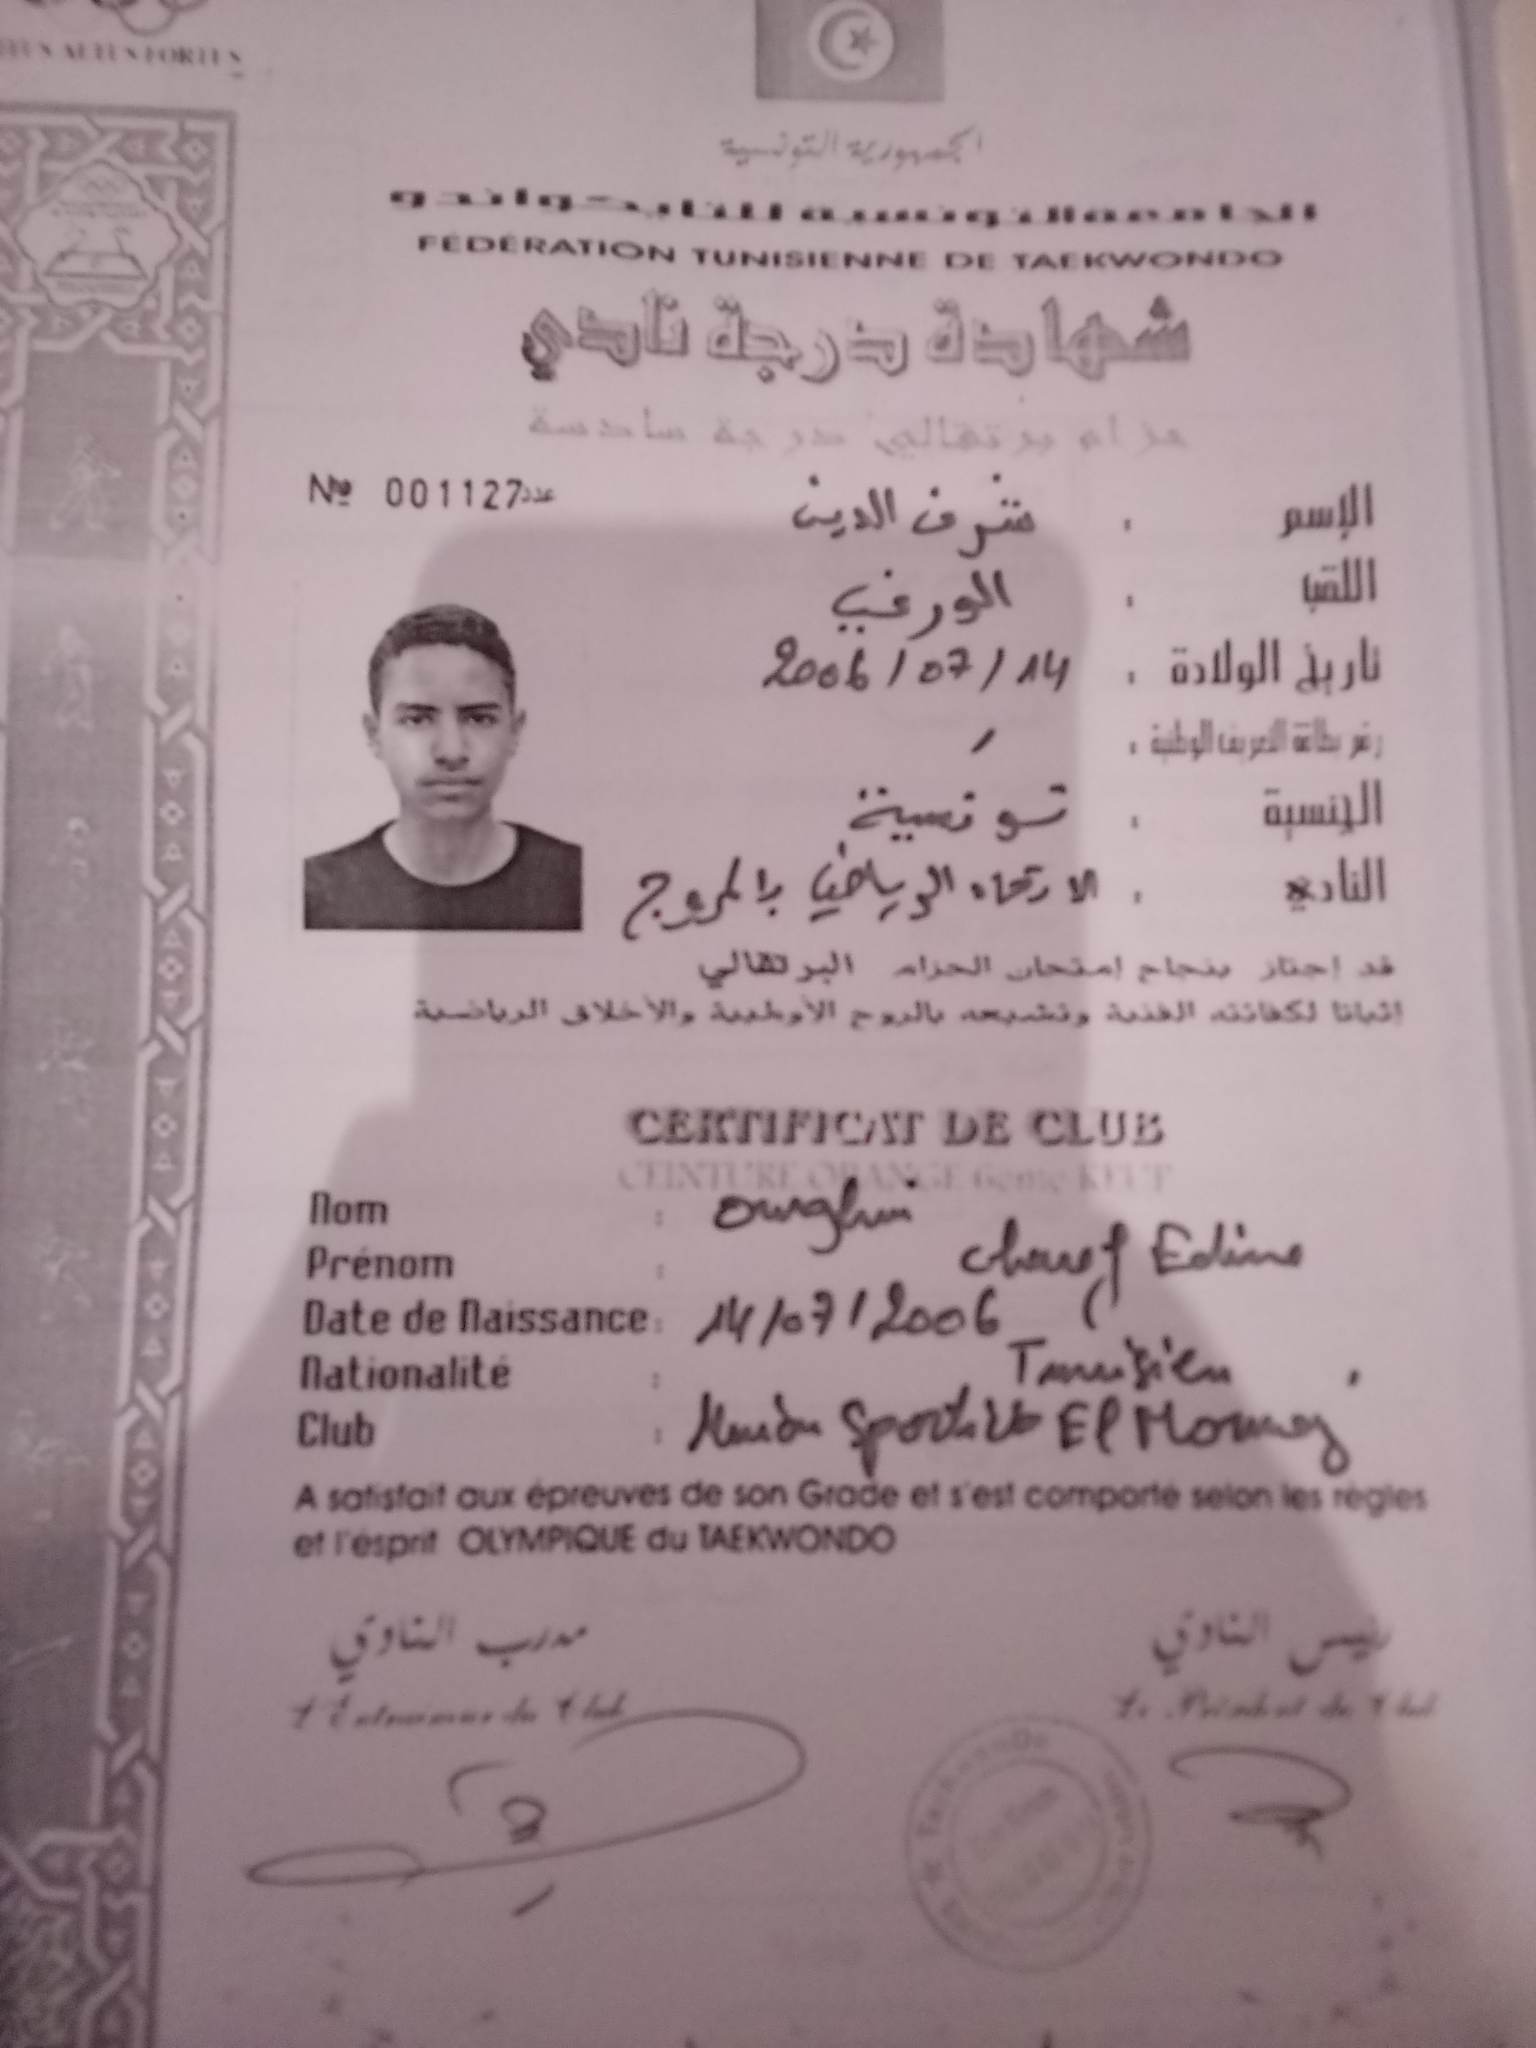 الجمهورية التونسية
الجامعة التونسية للتايكواندو
FÉDÉRATION TUNISIENNE DE TAEKWONDO
شهادة درجة نادي
حزام برتقالي درجة سادسة
Nº 001127 عدد
الإسم : شرف الدين
اللقب : الورغي
تاريخ الولادة : 2006/07/14
رقم بطاقة التعريف الوطنية : /
الجنسية : تونسية
النادي : الاتحاد الرياضي بالمروج
قد إجتاز بنجاح إمتحان الحزام البرتقالي
إثباتا لكفائته الفنية وتشبعه بالروح الأولمبية والأخلاق الرياضية
CERTIFICAT DE CLUB
CEINTURE ORANGE 6eme KEUP
Nom : Ourghui
Prénom : Charef Edine
Date de Naissance : 14/07/2006
Nationalité : Tunisien
Club : Sportive El Mourouj
A satisfait aux épreuves de son Grade et s'est comporté selon les règles
et l'ésprit OLYMPIQUE du TAEKWONDO
مدرب النادي
رئيس النادي
L'Entraineur du Club
Le Président du Club